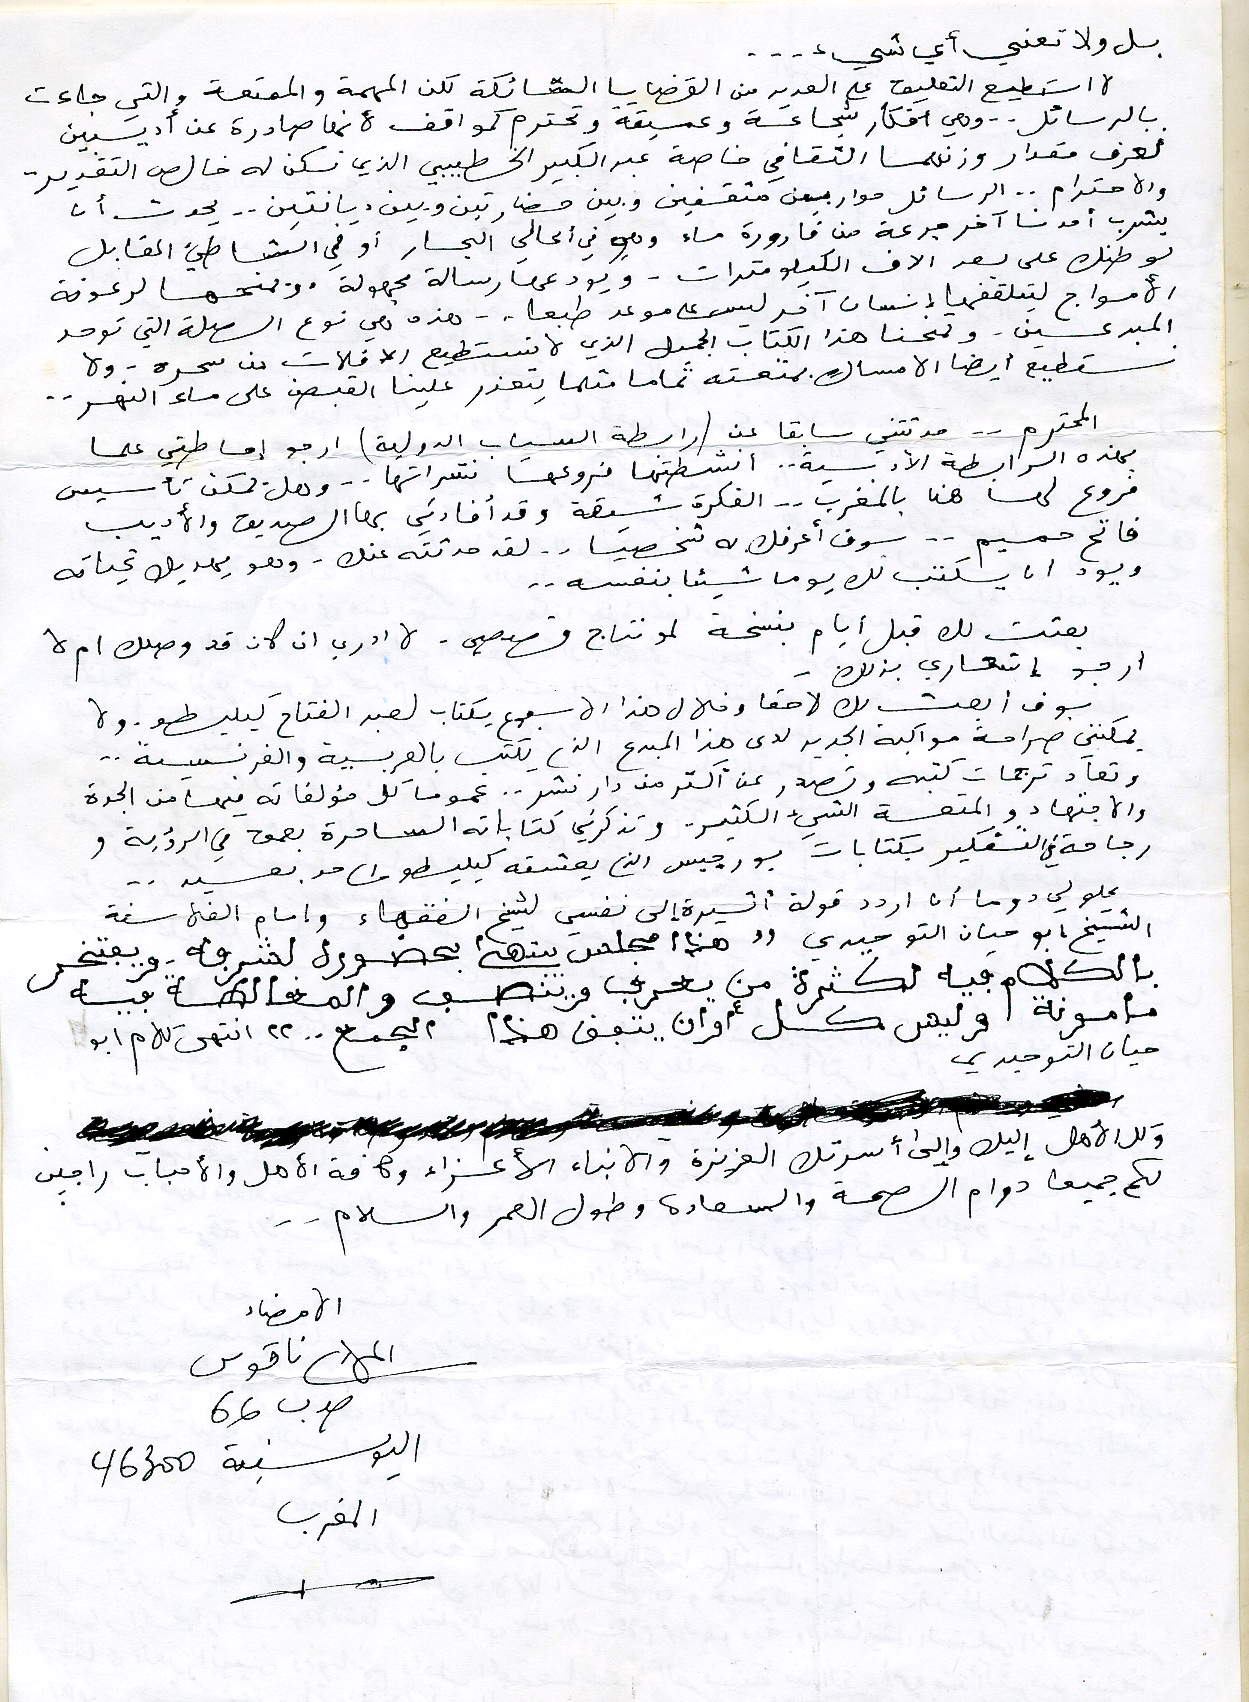 بل ولا تعني أي شيء ....
لا استطيع التعليق على العديد من القضايا الشائكة لكن المهمة والممتعة والتي جاءت
بالرسائل .. وهي أفكار شجاعة وعميقة وتحترم كمواقف لأنها صادرة عن أديبين
نعرف مقدار وزنهما الثقافي خاصة عبد الكبير الخطيبي الذي نكن له خالص التقدير
والاحترام .. الرسائل حوار بين مثقفين وبين حضارتين وبين ديانتين .. يحدث أن
يشرب أحدنا آخر جرعة من قارورة ماء وهو في أعالي البحار أو في الشاطئ المقابل
لوطنك على بعد الاف الكيلومترات - ويودعها رسالة مجهولة .. ويمنحها لرعونة
الأمواج ليتلقفها إنسان آخر ليس على موعد طبعا .. هذه هي نوع الصلة التي توحد
المبدعين - ولمحنا هذا الكتاب الجميل الذي لا نستطيع الافلات من سحره - ولا
نستطيع أيضا الامساك بمتعته تماما مثلما يتعذر علينا القبض على ماء النهر ..
المحترم .. حدثتني سابقا عن (رابطة السياب الدولية) ارجو إحاطتي علما
بهذه الرابطة الأدبية .. أنشطتها فروعها نشراتها .. وهل يمكن تأسيس
فروع لها هنا بالمغرب .. الفكرة شيقة وقد أفادني بها الصديق والأديب
فاتح حميم .. سوف أعرفك به شخصيا .. لقد حدثته عنك - وهو يهديك تحياته
ويود ان يكتب لك يوما شيئا بنفسه ..
بعثت لك قبل أيام بنسخة لمونتاج قصصي - لا ادري ان كان قد وصلك ام لا
ارجو إشعاري بذلك -
سوف أبعث لك لاحقا وخلال هذا الاسبوع بكتاب لعبد الفتاح كيليطو . ولا
يمكنني صراحة مواكبة الجديد لدى هذا المبدع الذي يكتب بالعربية والفرنسية ..
وتعاد ترجمات كتبه وتصدر عن أكثر من دار نشر .. عموما كل مؤلفاته فيها من الجدة
والاجتهاد والمتعة الشيء الكثير - وتذكرني كتاباته الساحرة بعمق في الرؤية و
رجاحة في التفكير بكتابات بورخيس الذي يعشقه كيليطو الى حد بعيد ..
يحلو لي دوما أن اردد قولة أثيرة إلى نفسي لشيخ الفقهاء وامام الفلاسفة
الشيخ ابو حيان التوحيدي " هذا مجلس يتهيأ بحضوري لشرفه - ويفتخر
بالكلام فيه لكثرة من يعرف وينصف والمغالطة فيه
مأمونة وليس كل أوان يتفق هذا الجمع .. " انتهى كلام ابو
حيان التوحيدي
وكل الأمل إليك وإلى أسرتك العزيزة والابناء الأعزاء وكافة الأهل والأحباب راجين
لكم جميعا دوام الصحة والسعادة وطول العمر والسلام ..
الامضاء
ناقوس
ص ب 66
اليوسفية 46300
المغرب